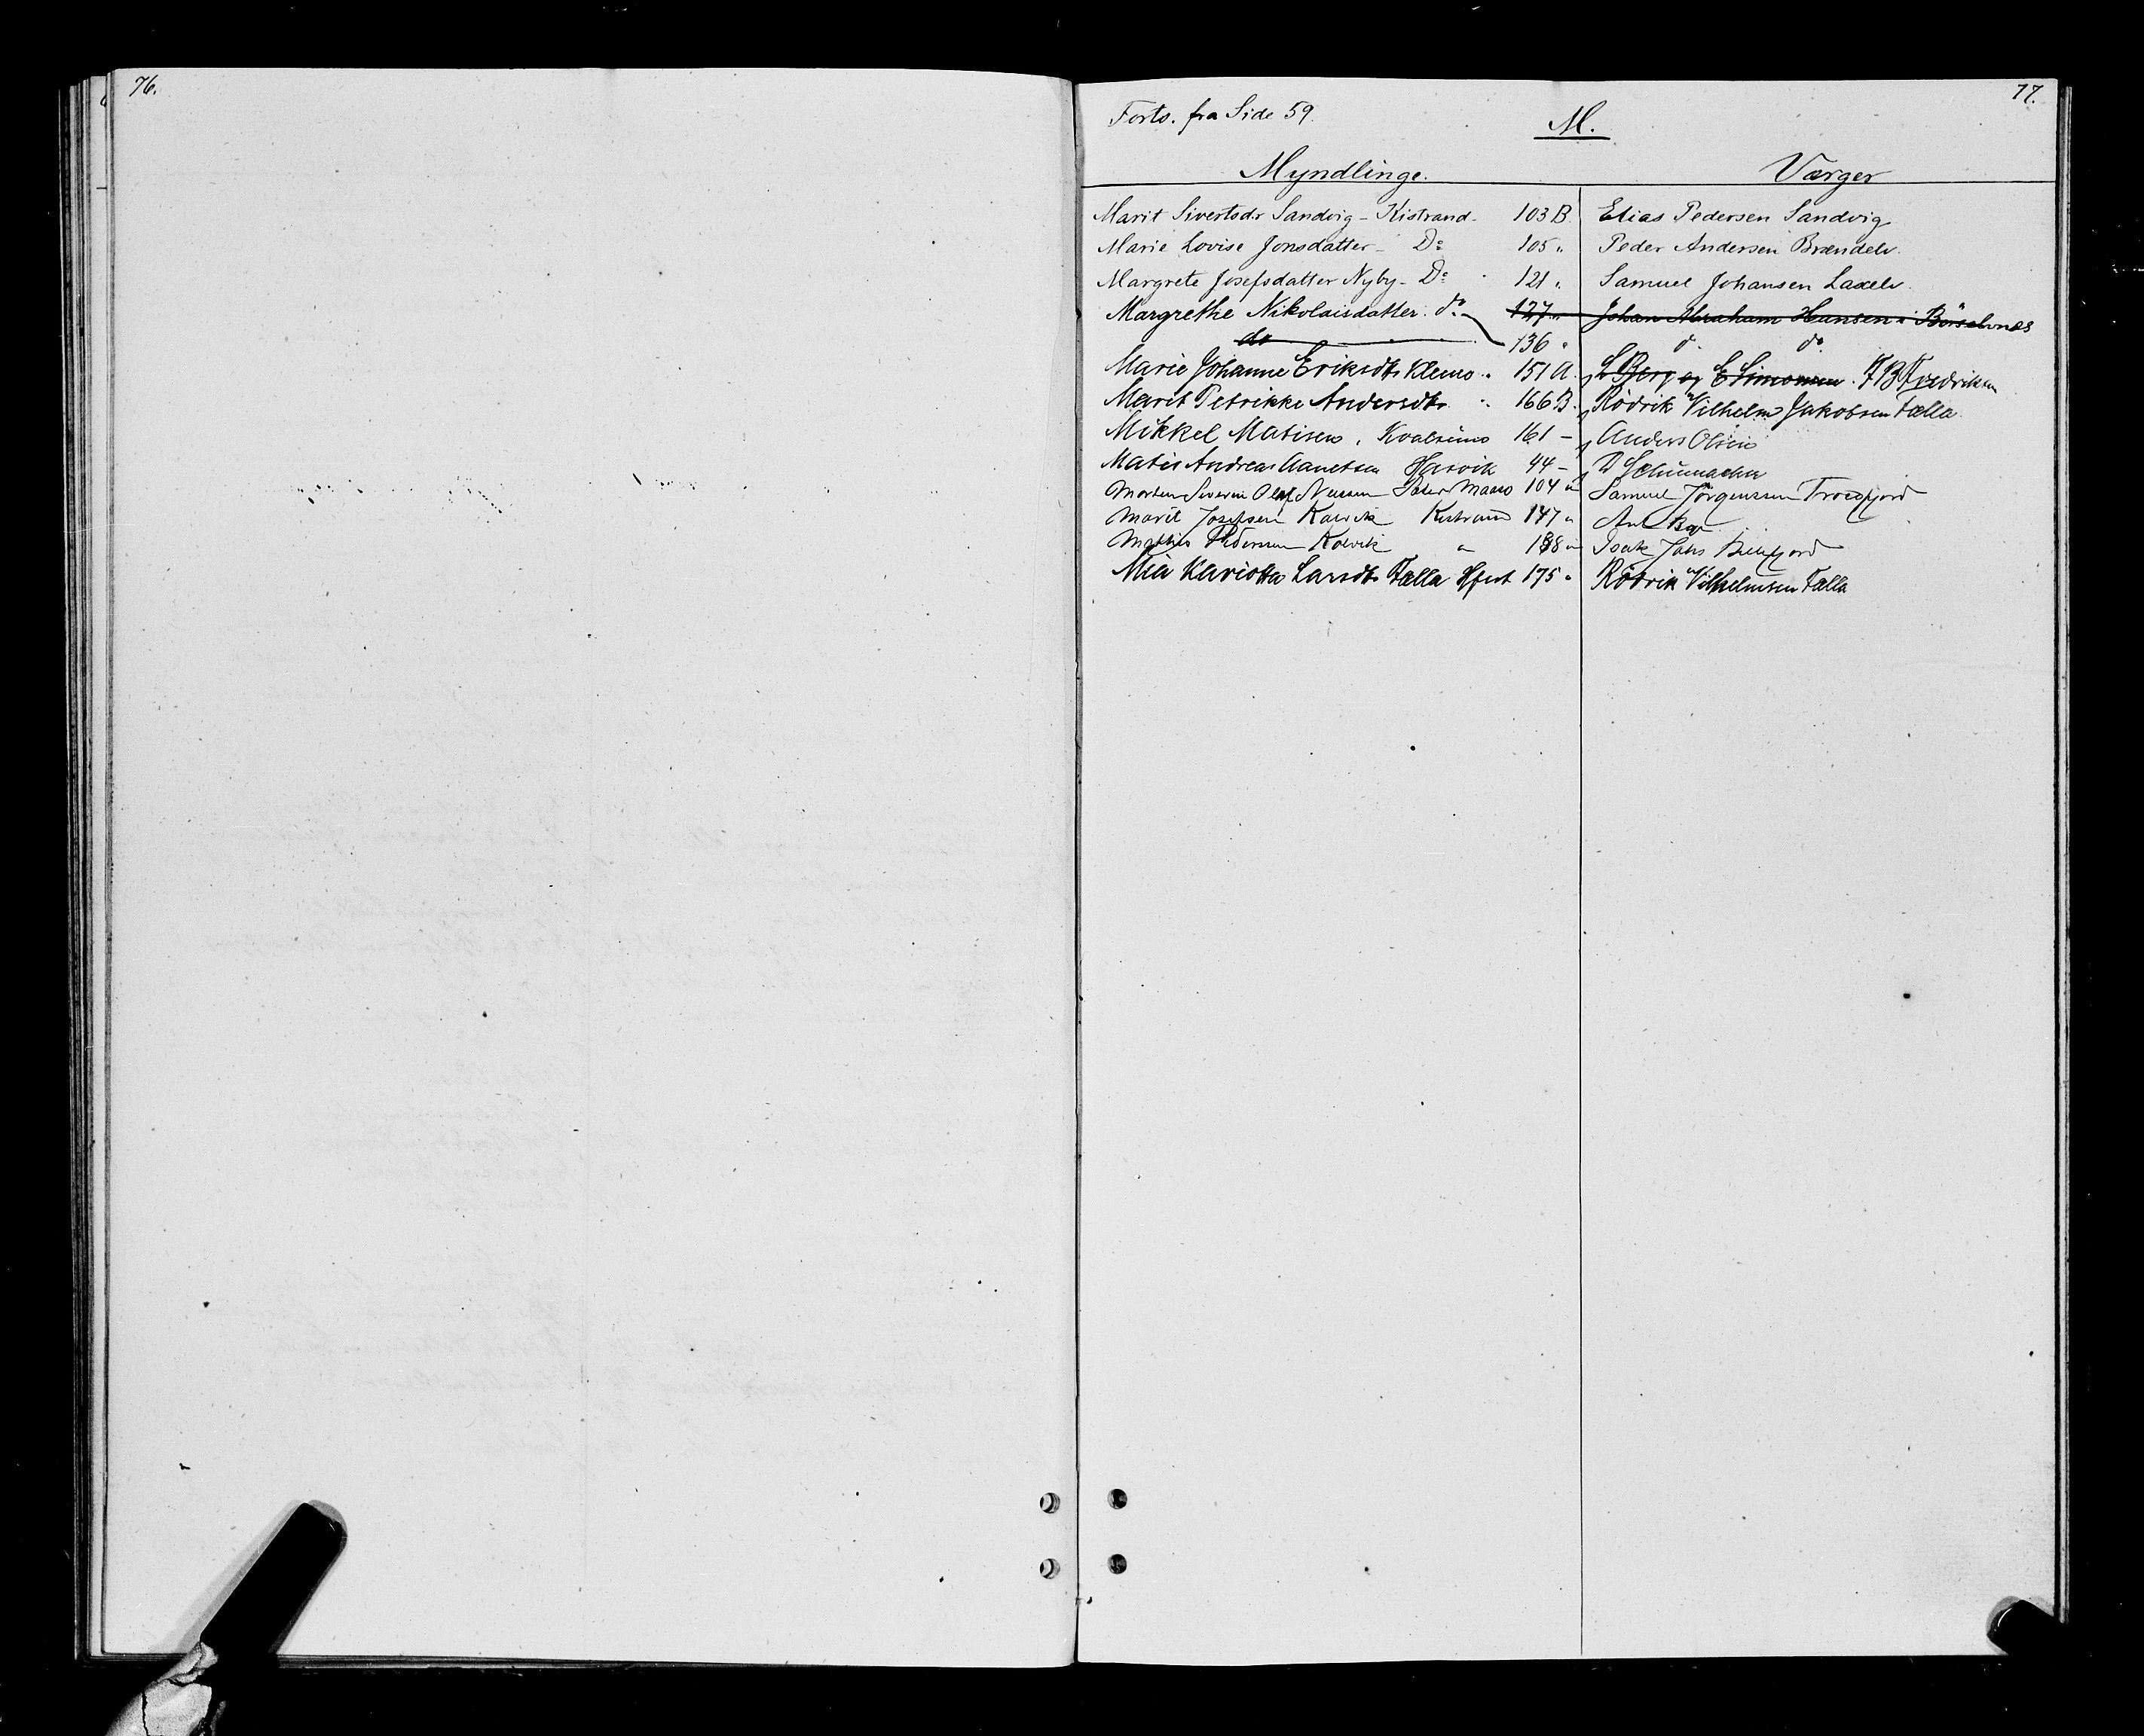 76.
77.
Forts. fra Side 59.
M.
Myndlinge. Værger
Marit Sivertsdr Sandvig - Kistrand. 103 B. Elias Pedersen Sandvig
Marie Lovise Jonsdatter - Do 105 " Peder Andersen Brændelv.
Margrete Josefsdatter Nyby - Do 121 " Samuel Johansen Laxelv.
Margrethe Nikolaisdatter. do 127 " Johan Abraham Hansen i Börselvnæs
do 136 " do do
Marie Johanne Eriksdtr Klemo " 151 A. L Berg og E Simonsen. F B Fredriksen
Marit Petrikke Andersdtr " 166 B. Rödrik Vilhelm Jakobsen Fælla.
Mikkel Matisen, Kvalsund 161 - Anders Olsen
Matis Andreas Hasvik 44 - Schumacher
Morten Severin Olaf Nilssen Maasö 104 " Samuel Jörgenssen Troldfjord
Marit Josefsen Kolvik Kistrand 147 "
Mathis Pedersen Kolvik " 188 " Isak Billefjord
Mia Larsdtr Fælla Hfest 175 " Rödrik Vilhelmsen Fælla